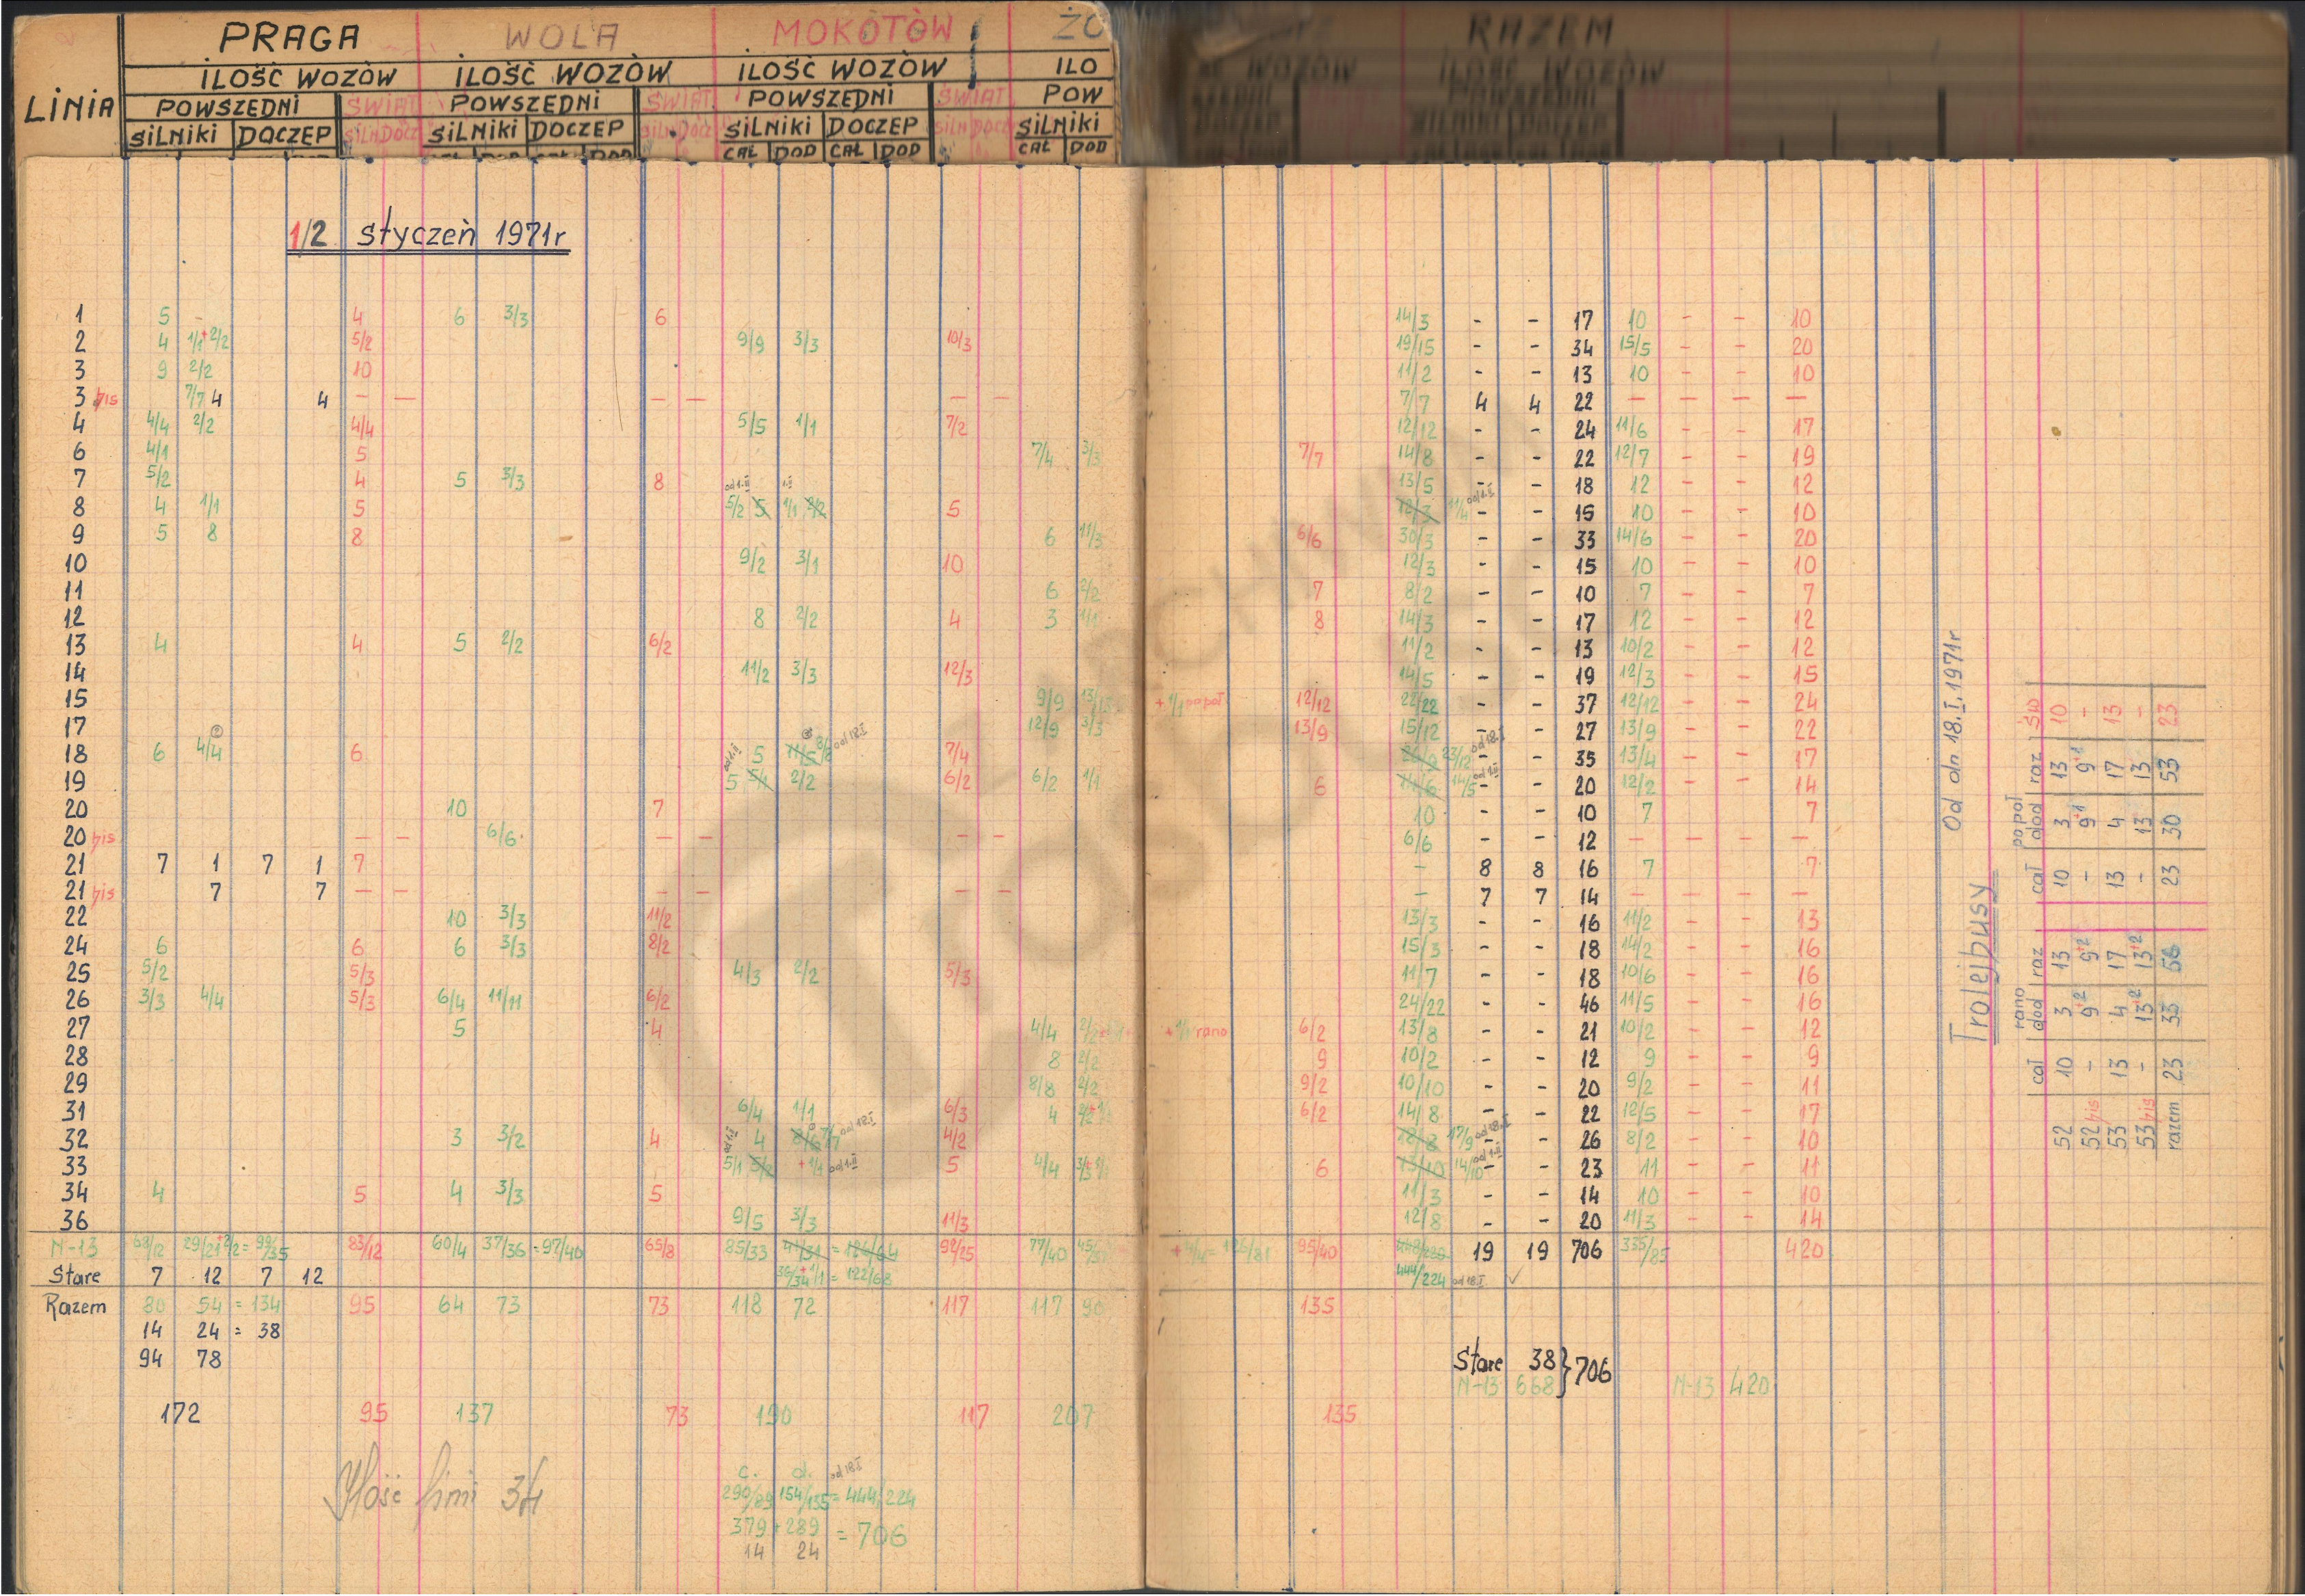 PRAGA WOLA MOKOTÓW ŻO RAZEM
ILOŚĆ WOZÓW ILOŚĆ WOZÓW ILOŚĆ WOZÓW ILO WOZÓW ILOŚĆ WOZÓW
LINIA POWSZEDNI ŚWIĄT POWSZEDNI ŚWIĄT POWSZEDNI ŚWIĄT POW
SILNIKI DOCZEP SILN DOCZ SILNIKI DOCZEP SILN DOCZ SILNIKI DOCZEP SILN DOCZ SILNIKI
CAŁ DOD CAŁ DOD CAŁ DOD
1/2 styczeń 1971r
1 5 - 4 6 3/3 6 14/3 - - 17 10 - - 10
2 4 1/1+2/2 5/2 9/9 3/3 10/3 19/15 - - 34 15/5 - - 20
3 9 2/2 10 11/2 - - 13 10 - - 10
3 bis 7/7 4 4 - - - - - - 7/7 4 4 22 - - - -
4 4/4 2/2 4/4 5/5 1/1 7/2 12/12 - - 24 11/6 - - 17
6 4/1 5 7/4 3/3 7/7 14/8 - - 22 12/7 - - 19
7 5/2 4 5 3/3 8 od 1.II 1.II 13/5 - - 18 12 - - 12
8 4 1/1 5 5/2 5 1/1 2/2 5 12/3 11/4 od 1.II - - 15 10 - - 10
9 5 8 8 6 11/3 6/6 30/3 - - 33 14/6 - - 20
10 9/2 3/1 10 12/3 - - 15 10 - - 10
11 6 2/2 7 8/2 - - 10 7 - - 7
12 8 2/2 4 3 1/1 8 14/3 - - 17 12 - - 12
13 4 4 5 2/2 6/2 11/2 - - 13 10/2 - - 12
14 11/2 3/3 12/3 14/5 - - 19 12/3 - - 15
15 9/9 13/13 +1/1 popoł 12/12 22/22 - - 37 12/12 - - 24
17 12/9 3/3 13/9 15/12 - - 27 13/9 - - 22
18 6 4/4 6 od 1.II 5 11/5 8/8 od 18.I 7/4 26/9 23/12 od 18.I - - 35 13/4 - - 17
19 5 5/1 2/2 6/2 6/2 1/1 6 14/6 14/5 od 1.II - - 20 12/2 - - 14
20 10 7 10 - - 10 7 7
20 bis - - 6/6 - - - - 6/6 - - 12 - - - -
21 7 1 7 1 7 - 8 8 16 7 7
21 bis 7 7 - - - - - - - 7 7 14 - - - -
22 10 3/3 11/2 13/3 - - 16 11/2 - - 13
24 6 6 6 3/3 8/2 15/3 - - 18 14/2 - - 16
25 5/2 5/3 4/3 2/2 5/3 11/7 - - 18 10/6 - - 16
26 3/3 4/4 5/3 6/4 11/11 6/2 24/22 - - 46 11/5 - - 16
27 5 4 4/4 2/2 +1/1 rano 6/2 13/8 - - 21 10/2 - - 12
28 8 2/2 9 10/2 - - 12 9 - - 9
29 8/8 2/2 9/2 10/10 - - 20 9/2 - - 11
31 6/4 1/1 6/3 4 2/2 6/2 14/8 - - 22 12/5 - - 17
32 3 3/2 4 4 8/6 7/7 od 18.I 4/2 18/8 17/9 od 18.I - - 26 8/2 - - 10
33 5/1 5/2 +1/1 od 1.II 5 4/4 3/3 6 13/10 14/10 od 1.II - - 23 11 - - 11
34 4 5 4 3/3 5 11/3 - - 14 10 - - 10
36 9/5 3/3 11/3 12/8 - - 20 11/3 - - 14
N-13 68/12 29/21+2/2 = 99/35 83/12 60/4 37/36 = 97/40 65/8 85/33 41/31 = 126/64 92/25 77/40 = 126/81 95/40 448/220 19 19 706 335/85 420
Stare 7 12 7 12 36/34+1/1 = 122/68 444/224 od 18.I
Razem 80 54 = 134 95 64 73 73 118 72 117 117 90 135
14 24 = 38
94 78
Stare 38 } 706
N-13 668 N-13 420
172 95 137 73 190 117 207 135
Ilość linii 34
c. d. od 18.I
290/89 154/135 = 444/224
379 + 289 = 706
14 24
Trolejbusy Od dn 18.I.1971r
rano popoł
cał dod raz cał dod raz Św
52 10 3 13 10 3 13 10
52 bis - 9+2 9+2 - 9+1 9+1 -
53 13 4 17 13 4 17 13
53 bis - 13+2 13+2 - 13 13 -
razem 23 33 56 23 30 53 23